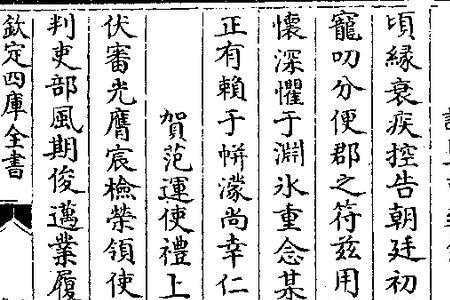 頃縁衰疾控告朝廷初
寵叨分便郡之符兹用
懐深懼于淵氷重念某
正有賴于帡濛尚幸仁
賀范運使禮上
伏審光膺宸檢榮領使
判吏部風期俊邁業履
欽定四庫全書